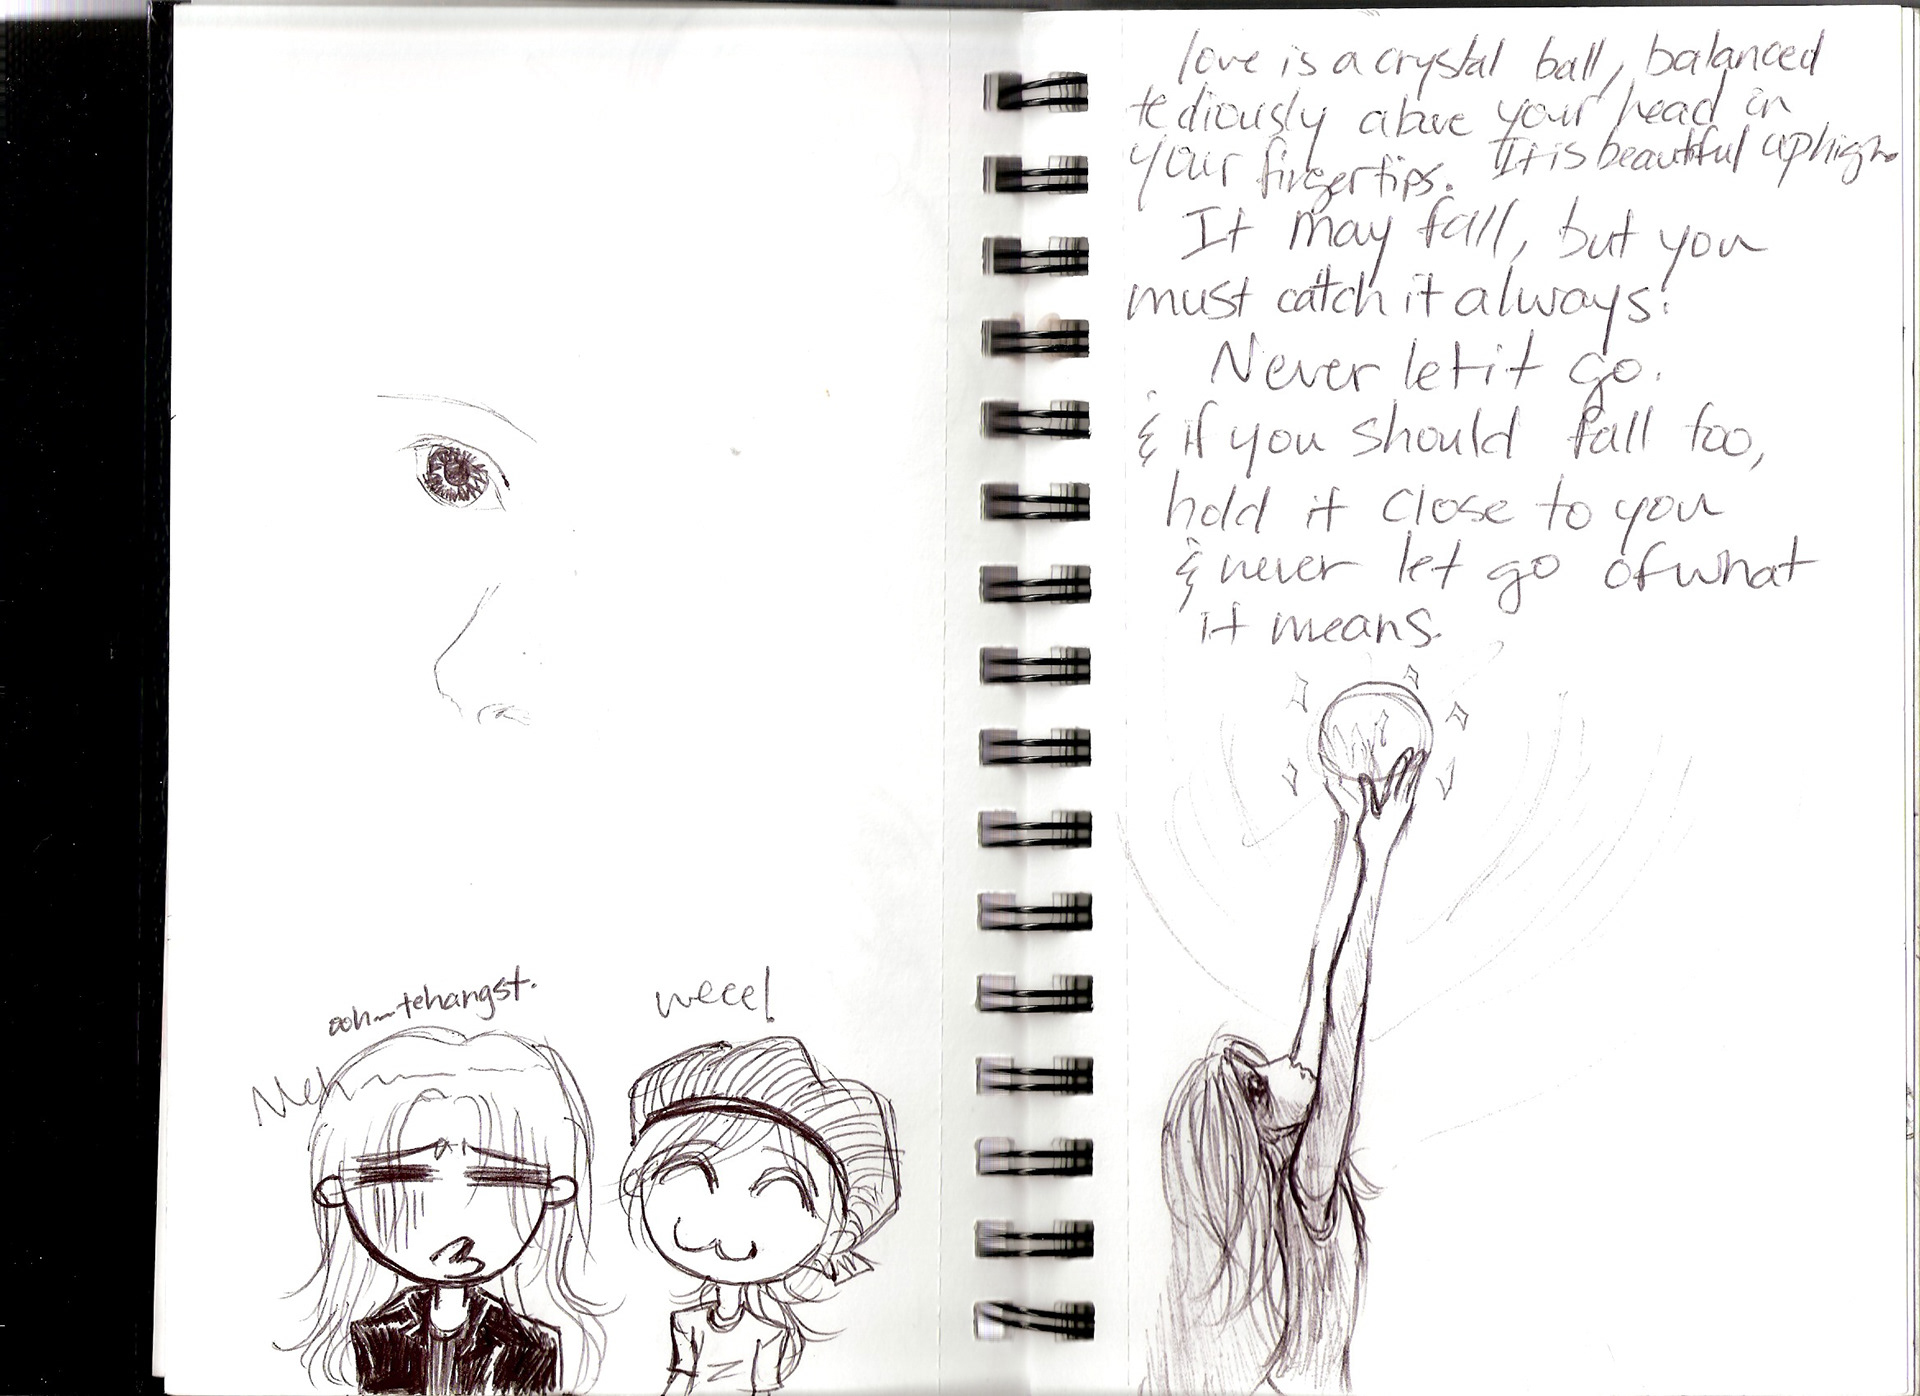 ooh... tehangst.
Meh
weee!
love is a crystal ball, balanced
tediously above your head in
your fingertips. It is beautiful up high.
It may fall, but you
must catch it always.
Never let it go.
& if you should fall too,
hold it close to you
& never let go of what
it means.